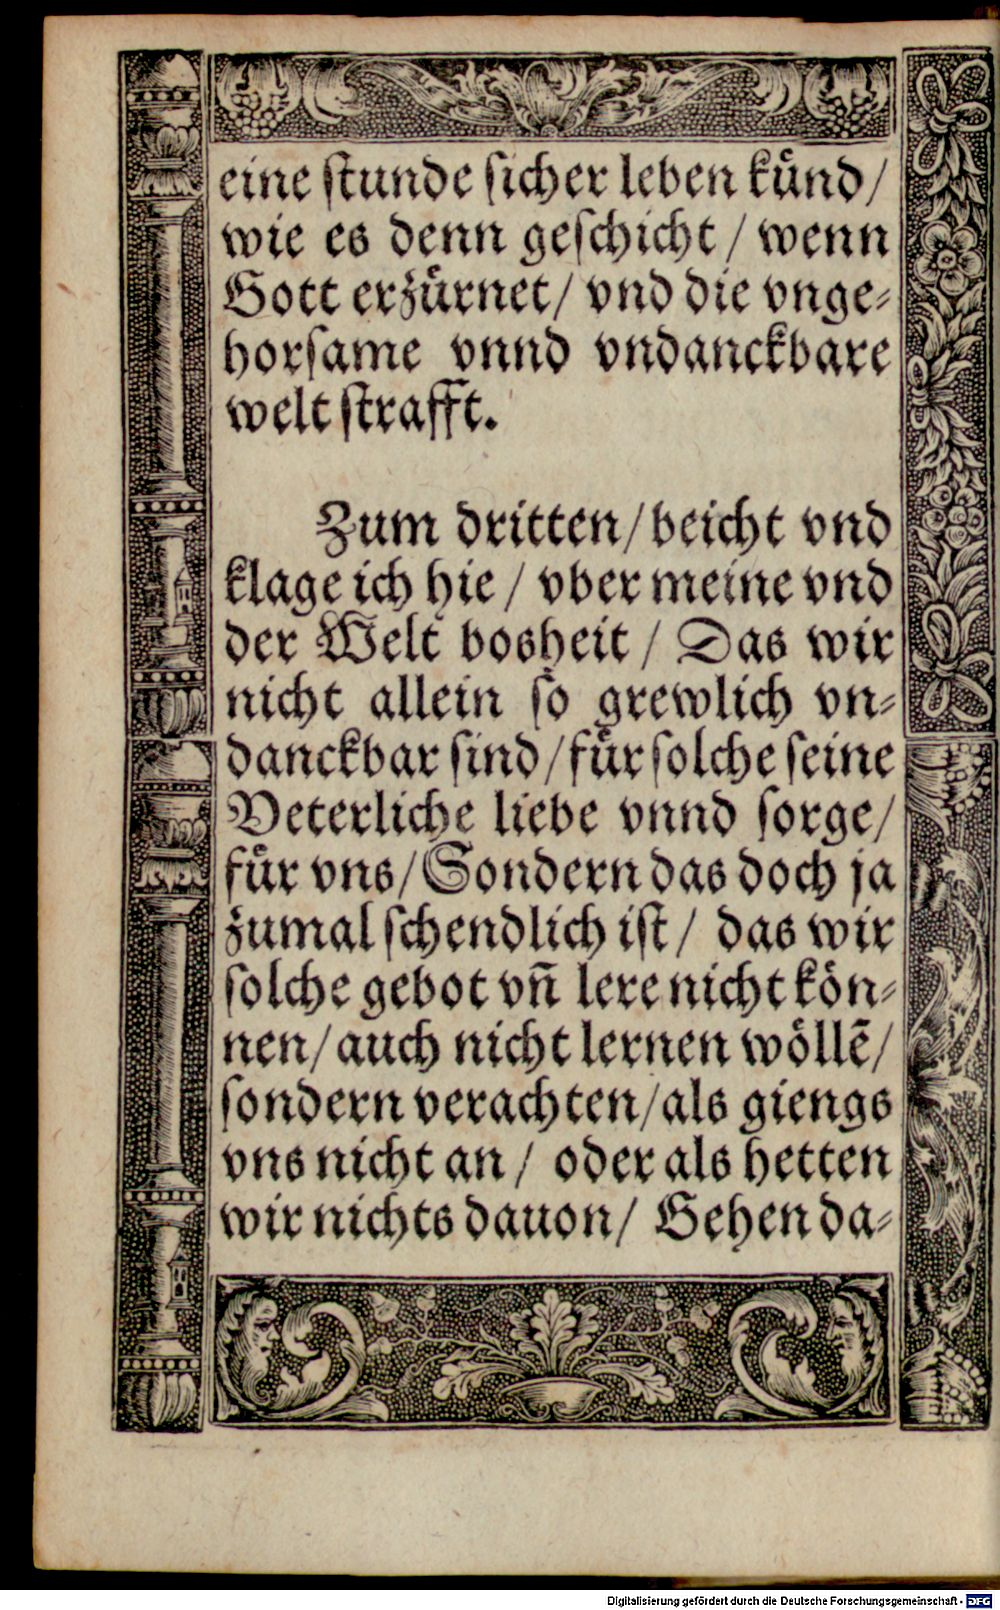 eine ſtunde ſicher leben kuͤnd/
wie es denn geſchicht / wenn
Gott erzuͤrnet/ vnd die vnge⸗
horſame vnnd vndanckbare
welt ſtrafft.
Zum dritten/ beicht vnd
klage ich hie / vber meine vnd
der Welt bosheit / Das wir
nicht allein ſo grewlich vn⸗
danckbar ſind/ fuͤr ſolche ſeine
Veterliche liebe vnnd ſorge/
fuͤr vns/ Sondern das doch ja
zumal ſchendlich iſt/ das wir
ſolche gebot vn̄ lere nicht koͤn⸗
nen/ auch nicht lernen woͤllē/
ſondern verachten/ als giengs
vns nicht an / oder als hetten
wir nichts dauon/ Gehen da⸗
Digitalisierung gefördert durch die Deutsche Forschungsgemeinschaft - DFG